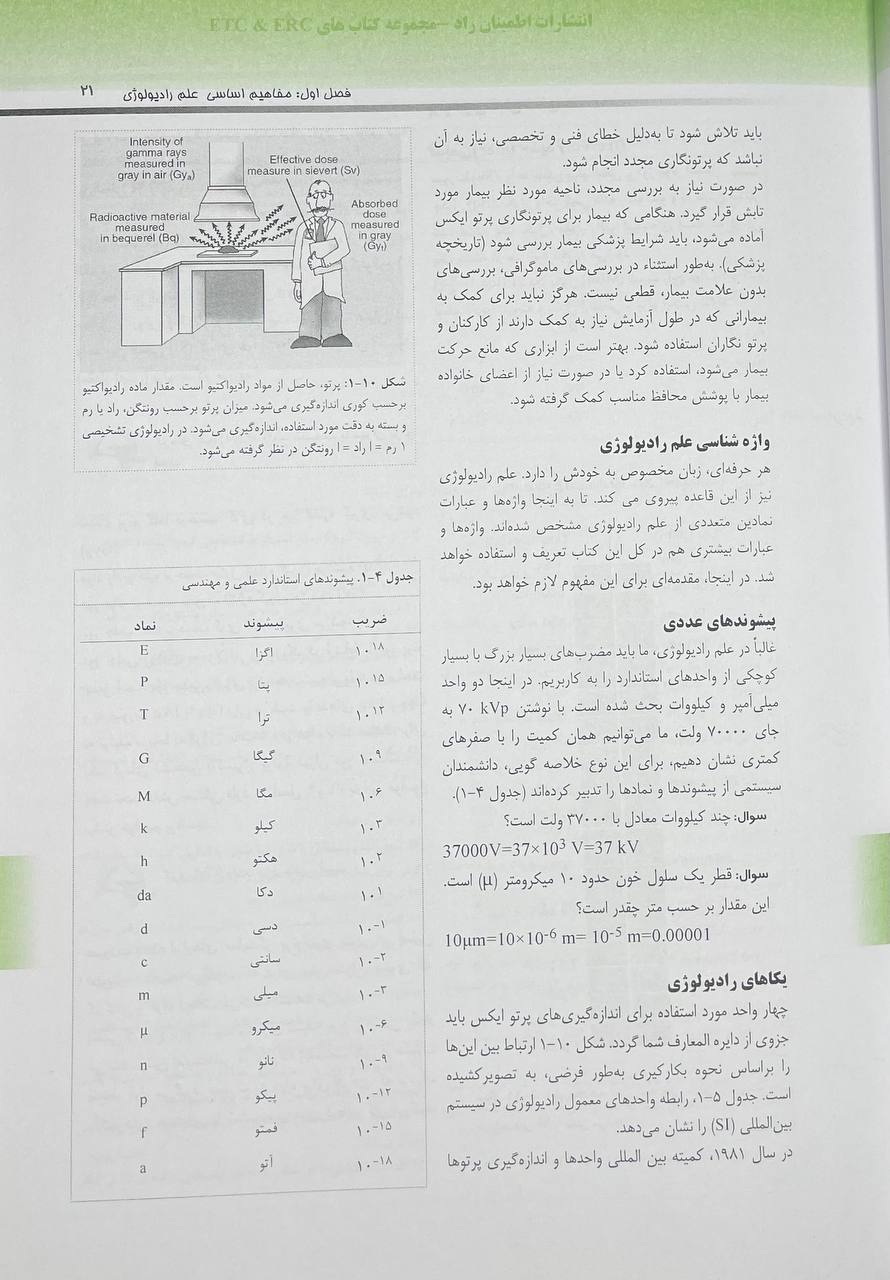 انتشارات اطمینان راد -مجموعه کتاب های ETC & ERC
فصل اول: مفاهیم اساسی علم رادیولوژی ۲۱
باید تلاش شود تا به‌دلیل خطای فنی و تخصصی، نیاز به آن
نباشد که پرتونگاری مجدد انجام شود.
در صورت نیاز به بررسی مجدد، ناحیه مورد نظر بیمار مورد
تابش قرار گیرد. هنگامی که بیمار برای پرتونگاری پرتو ایکس
آماده می‌شود، باید شرایط پزشکی بیمار بررسی شود (تاریخچه
پزشکی). به‌طور استثناء در بررسی‌های ماموگرافی، بررسی‌های
بدون علامت بیمار، قطعی نیست. هرگز نباید برای کمک به
بیمارانی که در طول آزمایش نیاز به کمک دارند از کارکنان و
پرتو نگاران استفاده شود. بهتر است از ابزاری که مانع حرکت
بیمار می‌شود، استفاده کرد یا در صورت نیاز از اعضای خانواده
بیمار با پوشش محافظ مناسب کمک گرفته شود.
واژه شناسی علم رادیولوژی
هر حرفه‌ای، زبان مخصوص به خودش را دارد. علم رادیولوژی
نیز از این قاعده پیروی می کند. تا به اینجا واژه‌ها و عبارات
نمادین متعددی از علم رادیولوژی مشخص شده‌اند. واژه‌ها و
عبارات بیشتری هم در کل این کتاب تعریف و استفاده خواهد
شد. در اینجا، مقدمه‌ای برای این مفهوم لازم خواهد بود.
پیشوندهای عددی
غالباً در علم رادیولوژی، ما باید مضرب‌های بسیار بزرگ با بسیار
کوچکی از واحدهای استاندارد را به کاربریم. در اینجا دو واحد
میلی‌آمپر و کیلووات بحث شده است. با نوشتن ۷۰ kVp به
جای ۷۰۰۰۰ ولت، ما می‌توانیم همان کمیت را با صفرهای
کمتری نشان دهیم، برای این نوع خلاصه گویی، دانشمندان
سیستمی از پیشوندها و نمادها را تدبیر کرده‌اند (جدول ۴-۱).
سوال: چند کیلووات معادل با ۳۷۰۰۰ ولت است؟
37000V=37×10³ V=37 kV
سوال: قطر یک سلول خون حدود ۱۰ میکرومتر (μ) است.
این مقدار بر حسب متر چقدر است؟
10μm=10×10⁻⁶ m= 10⁻⁵ m=0.00001
یکاهای رادیولوژی
چهار واحد مورد استفاده برای اندازه‌گیری‌های پرتو ایکس باید
جزوی از دایره المعارف شما گردد. شکل ۱۰-۱ ارتباط بین این‌ها
را براساس نحوه بکارگیری به‌طور فرضی، به تصویرکشیده
است. جدول ۵-۱، رابطه واحدهای معمول رادیولوژی در سیستم
بین‌المللی (SI) را نشان می‌دهد.
در سال ۱۹۸۱، کمیته بین المللی واحدها و اندازه‌گیری پرتوها
Intensity of
gamma rays
measured in
gray in air (Gyₐ)
Effective dose
measure in sievert (Sv)
Radioactive material
measured
in bequerel (Bq)
Absorbed
dose
measured
in gray
(Gyₜ)
شکل ۱۰-۱: پرتو، حاصل از مواد رادیواکتیو است. مقدار ماده رادیواکتیو
برحسب کوری اندازه‌گیری می‌شود. میزان پرتو برحسب رونتگن، راد یا رم
و بسته به دقت مورد استفاده، اندازه‌گیری می‌شود. در رادیولوژی تشخیصی
۱ رم = ۱ راد = ۱ رونتگن در نظر گرفته می‌شود.
جدول ۴-۱. پیشوندهای استاندارد علمی و مهندسی
ضریب پیشوند نماد
۱۰¹⁸ اگزا E
۱۰¹⁵ پتا P
۱۰¹² ترا T
۱۰⁹ گیگا G
۱۰⁶ مگا M
۱۰³ کیلو k
۱۰² هکتو h
۱۰¹ دکا da
۱۰⁻¹ دسی d
۱۰⁻² سانتی c
۱۰⁻³ میلی m
۱۰⁻⁶ میکرو μ
۱۰⁻⁹ نانو n
۱۰⁻¹² پیکو p
۱۰⁻¹⁵ فمتو f
۱۰⁻¹⁸ آتو a